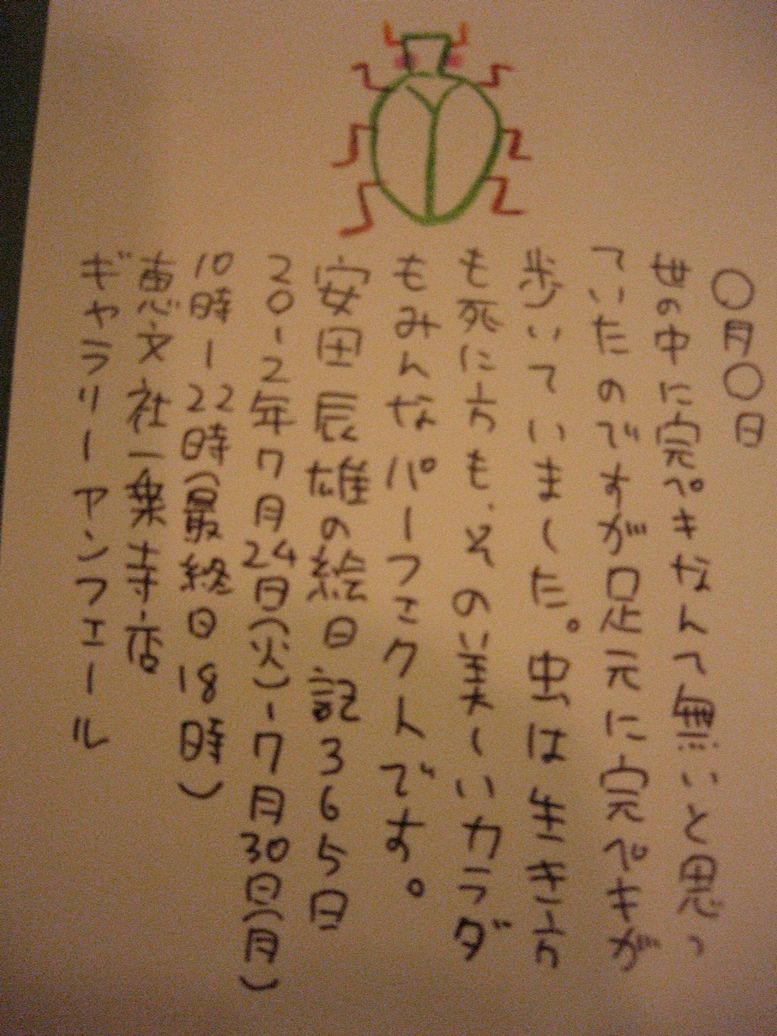 〇月〇日
世の中に完ペキなんて無いと思っ
ていたのですが足元に完ペキが
歩いていました。虫は生き方
も死に方も、その美しいカラダ
もみんなパーフェクトです。
安田辰雄の絵日記365日
2012年7月24日(火)-7月30日(月)
10時-22時(最終日18時)
恵文社一乗寺店
ギャラリーアンフェール